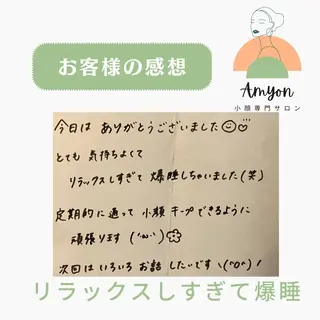 お客様の感想
Amyon
小顔専門サロン
今日は ありがとうございました
とても 気持ちよくて
リラックスしすぎて 爆睡しちゃいました(笑)
定期的に通って 小顔 キープできるように
頑張ります (･ω･)
次回は いろいろ お話 したいです ヽ(^o^)!
リラックスしすぎて爆睡